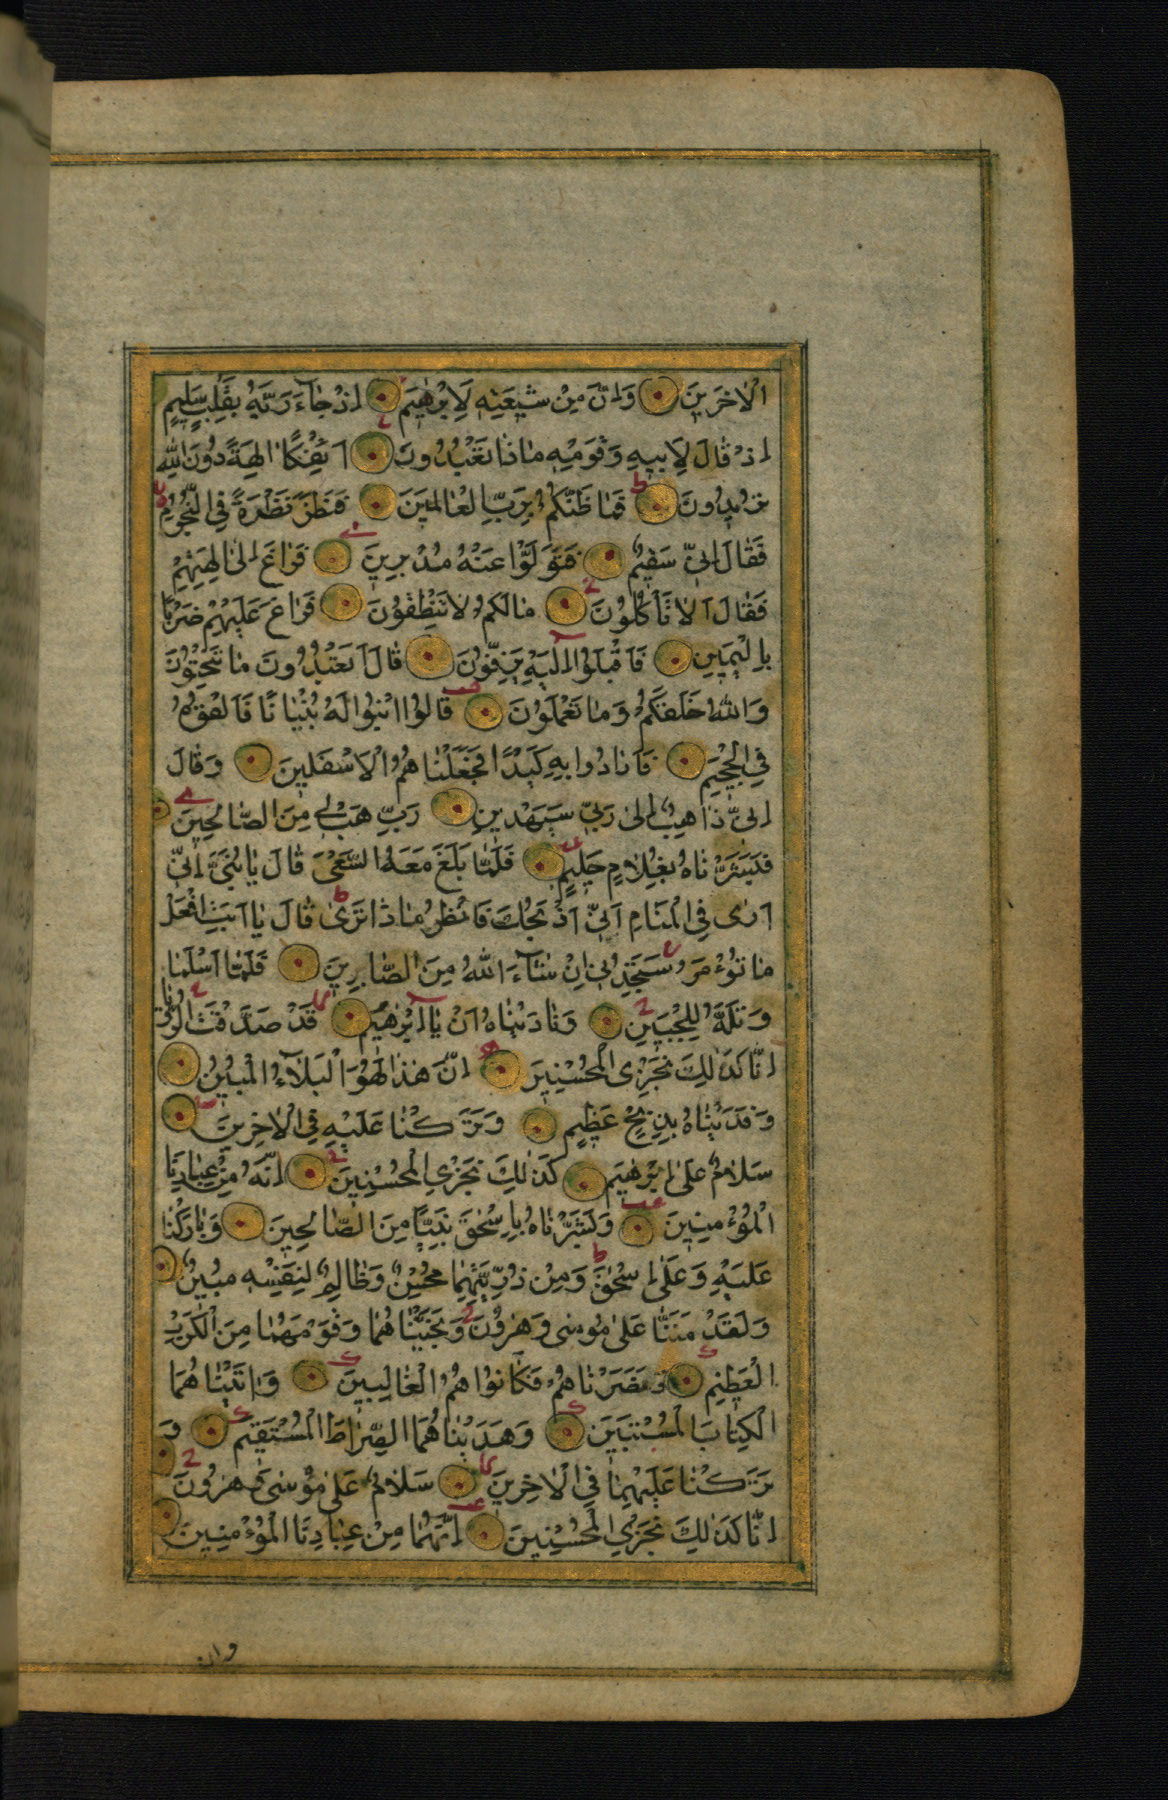 الْاٰخَرِينَ وَاِنَّ مِنْ شٖيعَتِهٖ لَاِبْرٰهٖيمَ اِذْ جَٓاءَ رَبَّهُ بِقَلْبٍ سَلٖيمٍ
اِذْ قَالَ لِاَبٖيهِ وَقَوْمِهٖ مَاذَا تَعْبُدُونَ اَئِفْكًا اٰلِهَةً دُونَ اللّٰهِ
تُرٖيدُونَ فَمَا ظَنُّكُمْ بِرَبِّ الْعَالَمٖينَ فَنَظَرَ نَظْرَةً فِي النُّجُومِ
فَقَالَ اِنّٖي سَقٖيمٌ فَتَوَلَّوْا عَنْهُ مُدْبِرٖينَ فَرَاغَ اِلٰى اٰلِهَتِهِمْ
فَقَالَ اَلَا تَأْكُلُونَ مَا لَكُمْ لَا تَنْطِقُونَ فَرَاغَ عَلَيْهِمْ ضَرْبًا
بِالْيَمٖينِ فَاَقْبَلُوا اِلَيْهِ يَزِفُّونَ قَالَ اَتَعْبُدُونَ مَا تَنْحِتُونَ
وَاللّٰهُ خَلَقَكُمْ وَمَا تَعْمَلُونَ قَالُوا ابْنُوا لَهُ بُنْيَانًا فَاَلْقُوهُ
فِي الْجَحٖيمِ فَاَرَادُوا بِهٖ كَيْدًا فَجَعَلْنَاهُمُ الْاَسْفَلٖينَ وَقَالَ
اِنّٖي ذَاهِبٌ اِلٰى رَبّٖي سَيَهْدٖينِ رَبِّ هَبْ لٖي مِنَ الصَّالِحٖينَ
فَبَشَّرْنَاهُ بِغُلَامٍ حَلٖيمٍ فَلَمَّا بَلَغَ مَعَهُ السَّعْيَ قَالَ يَا بُنَيَّ اِنّٖي
اَرٰى فِي الْمَنَامِ اَنّٖي اَذْبَحُكَ فَانْظُرْ مَاذَا تَرٰى قَالَ يَا اَبَتِ افْعَلْ
مَا تُؤْمَرُ سَتَجِدُنٖي اِنْ شَٓاءَ اللّٰهُ مِنَ الصَّابِرٖينَ فَلَمَّا اَسْلَمَا
وَتَلَّهُ لِلْجَبٖينِ وَنَادَيْنَاهُ اَنْ يَٓا اِبْرٰهٖيمُ قَدْ صَدَّقْتَ الرُّءْيَا
اِنَّا كَذٰلِكَ نَجْزِي الْمُحْسِنٖينَ اِنَّ هٰذَا لَهُوَ الْبَلَٓاءُ الْمُبٖينُ
وَفَدَيْنَاهُ بِذِبْحٍ عَظٖيمٍ وَتَرَكْنَا عَلَيْهِ فِي الْاٰخِرٖينَ
سَلَامٌ عَلٰى اِبْرٰهٖيمَ كَذٰلِكَ نَجْزِي الْمُحْسِنٖينَ اِنَّهُ مِنْ عِبَادِنَا
الْمُؤْمِنٖينَ وَبَشَّرْنَاهُ بِاِسْحٰقَ نَبِيًّا مِنَ الصَّالِحٖينَ وَبَارَكْنَا
عَلَيْهِ وَعَلٰى اِسْحٰقَ وَمِنْ ذُرِّيَّتِهِمَا مُحْسِنٌ وَظَالِمٌ لِنَفْسِهٖ مُبٖينٌ
وَلَقَدْ مَنَنَّا عَلٰى مُوسٰى وَهٰرُونَ وَنَجَّيْنَاهُمَا وَقَوْمَهُمَا مِنَ الْكَرْبِ
الْعَظٖيمِ وَنَصَرْنَاهُمْ فَكَانُوا هُمُ الْغَالِبٖينَ وَاٰتَيْنَاهُمَا
الْكِتَابَ الْمُسْتَبٖينَ وَهَدَيْنَاهُمَا الصِّرَاطَ الْمُسْتَقٖيمَ وَ
تَرَكْنَا عَلَيْهِمَا فِي الْاٰخِرٖينَ سَلَامٌ عَلٰى مُوسٰى وَهٰرُونَ
اِنَّا كَذٰلِكَ نَجْزِي الْمُحْسِنٖينَ اِنَّهُمَا مِنْ عِبَادِنَا الْمُؤْمِنٖينَ
وان